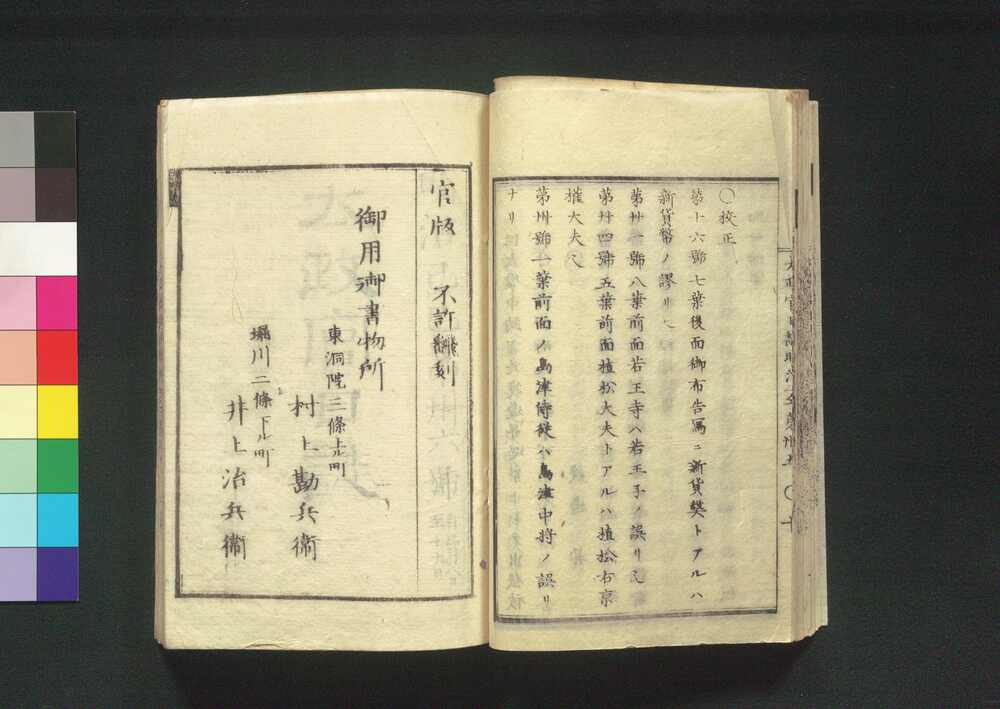 〇校正
第十六號七葉後面御布告寫ニ新貨獘トアルハ
新貨幣ノ謬リ
第廾一號八葉前面若王寺ハ若王子ノ誤リ又
第廾四號五葉前面植松大夫トアルハ植松右京
權大夫又
第卅號一葉前面ノ島津侍従ハ島津中將ノ誤リ
ナリ
官版 不許翻刻
御用御書物所
東洞院三條上ル町
村上勘兵衞
堀川二條下ル町
井上治兵衞